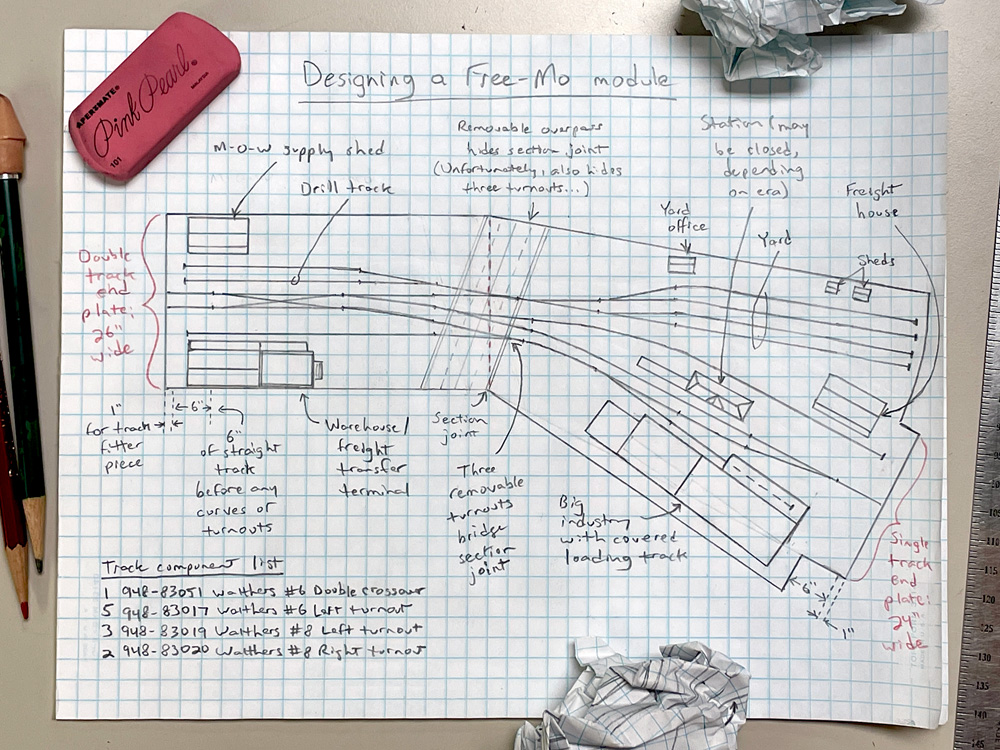 Designing a Free-Mo module
APEXMATE®
Pink Pearl®
101
M-O-W supply shed
Drill track
Removable overpass
hides section joint
(Unfortunately, also hides
three turnouts...)
Station (may
be closed,
depending
on era)
Freight
house
Yard
office
Yard
Sheds
Double
track
end
plate:
26"
wide
1"
for track
fitter
piece
6"
6"
of straight
track
before any
curves or
turnouts
Warehouse/
freight
transfer
terminal
Section
joint
Three
removable
turnouts
bridge
section
joint
Big
industry
with covered
loading track
Single
track
end
plate:
24"
wide
6"
1"
Track component list
1 948-83051 Walthers #6 Double crossover
5 948-83017 Walthers #6 Left turnout
3 948-83019 Walthers #8 Left turnout
2 948-83020 Walthers #8 Right turnout
105
110
115
120
125
130
135
140
145